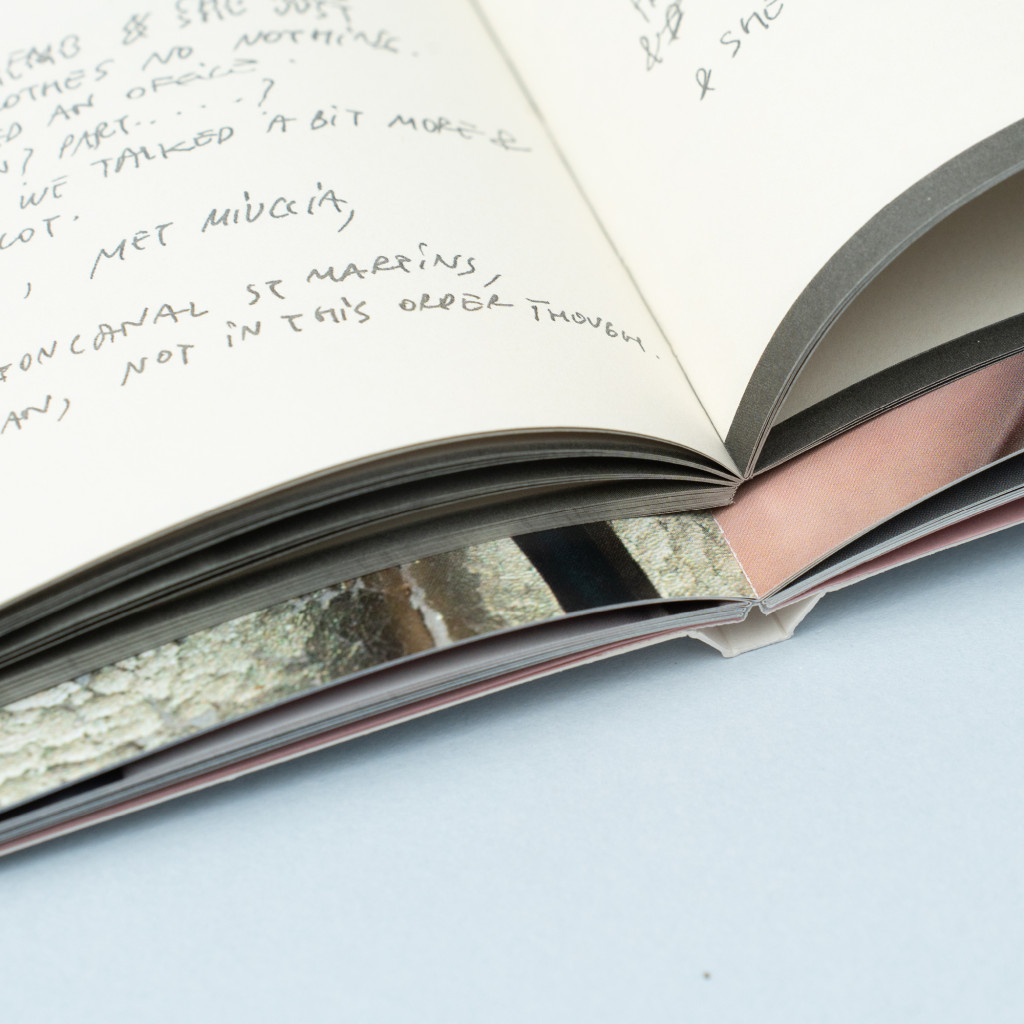 & SHE JUST
NO NOTHING.
AN OFFICE.
? PART....?
WE TALKED A BIT MORE &
LOT.
, MET MIUCCIA,
CANAL ST MARTINS,
NOT IN THIS ORDER THOUGH.
AN,
&
& SHE